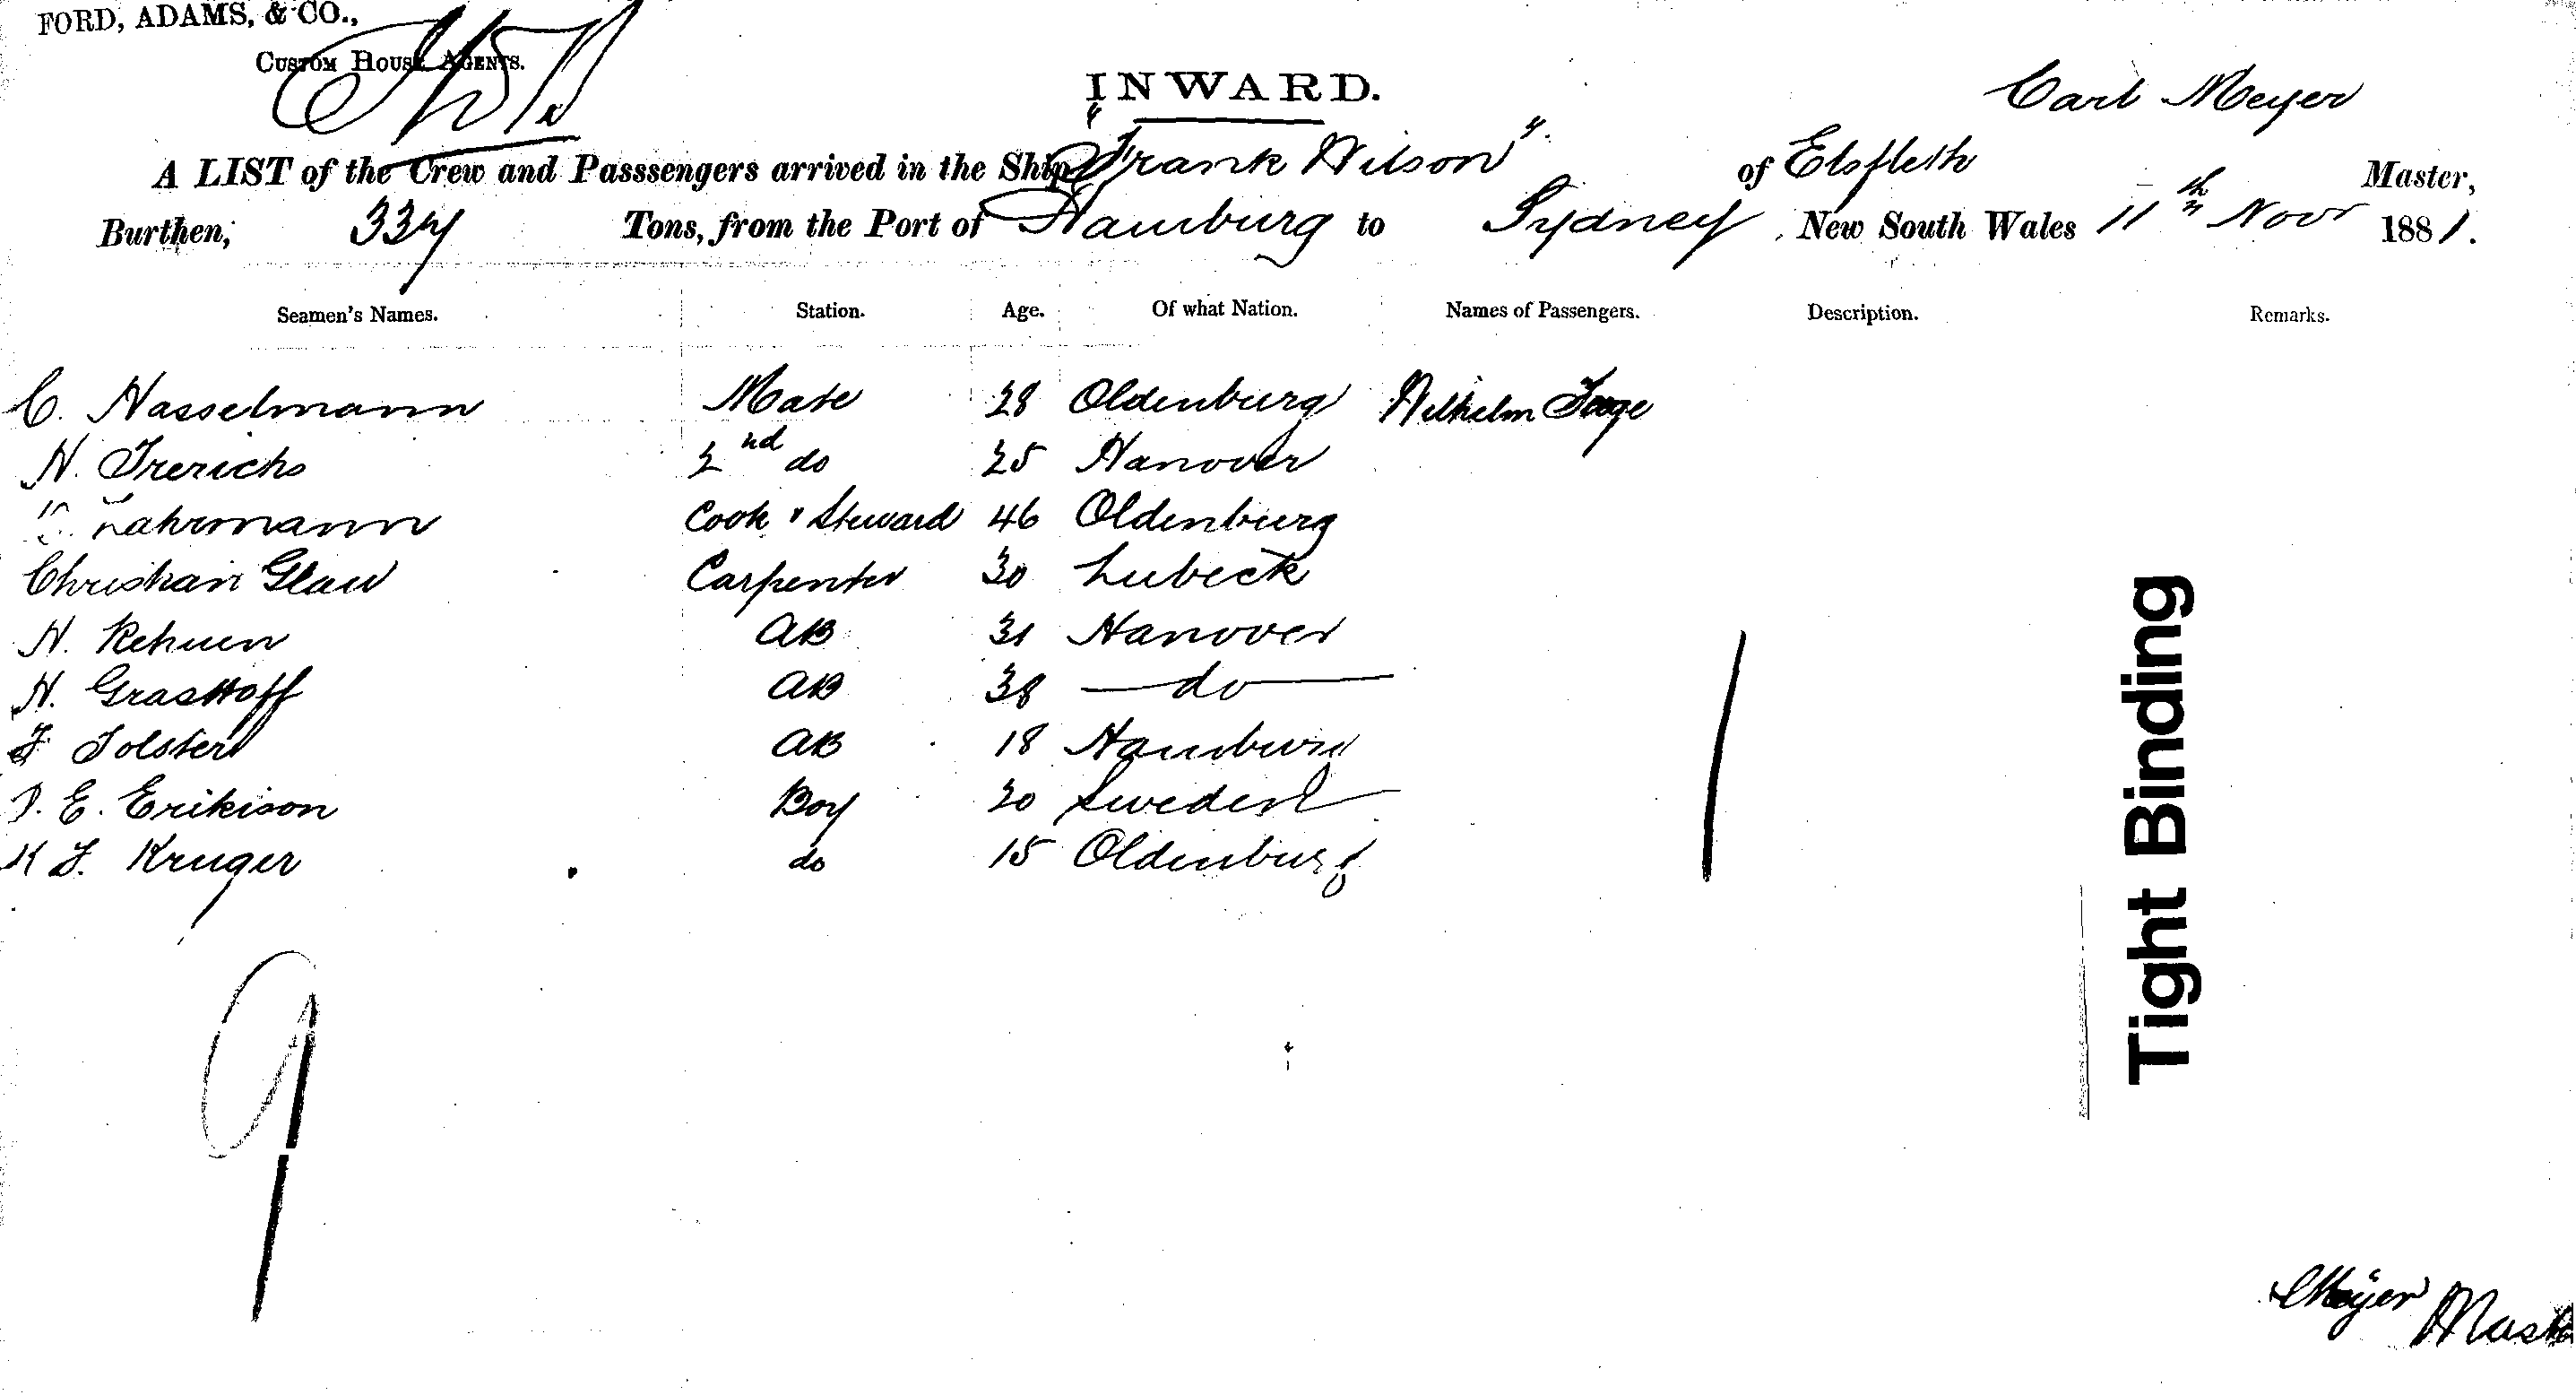 FORD, ADAMS, & CO.,
CUSTOM HOUSE AGENTS.
INWARD.
Carl Meyer
A LIST of the Crew and Passsengers arrived in the Ship "Frank Wilson" of Elsfleth Master,
Burthen, 337 Tons, from the Port of Hamburg to Sydney, New South Wales 11th Novr 1881.
Seamen's Names. Station. Age. Of what Nation. Names of Passengers. Description. Remarks.
C. Hasselmann Mate 28 Oldenburg Wilhelm
H. Frerichs 2nd do 25 Hanover
Lahrmann Cook & Steward 46 Oldenburg
Christian Glaw Carpenter 30 Lubeck
H. AB 31 Hanover
H. Grasthoff AB 38 do
F Tolster AB 18 Hamburg
E. Erikison Boy 20 Sweden
K F. Kruger do 15 Oldenburg
9
1
Tight Binding
CMeyer Master